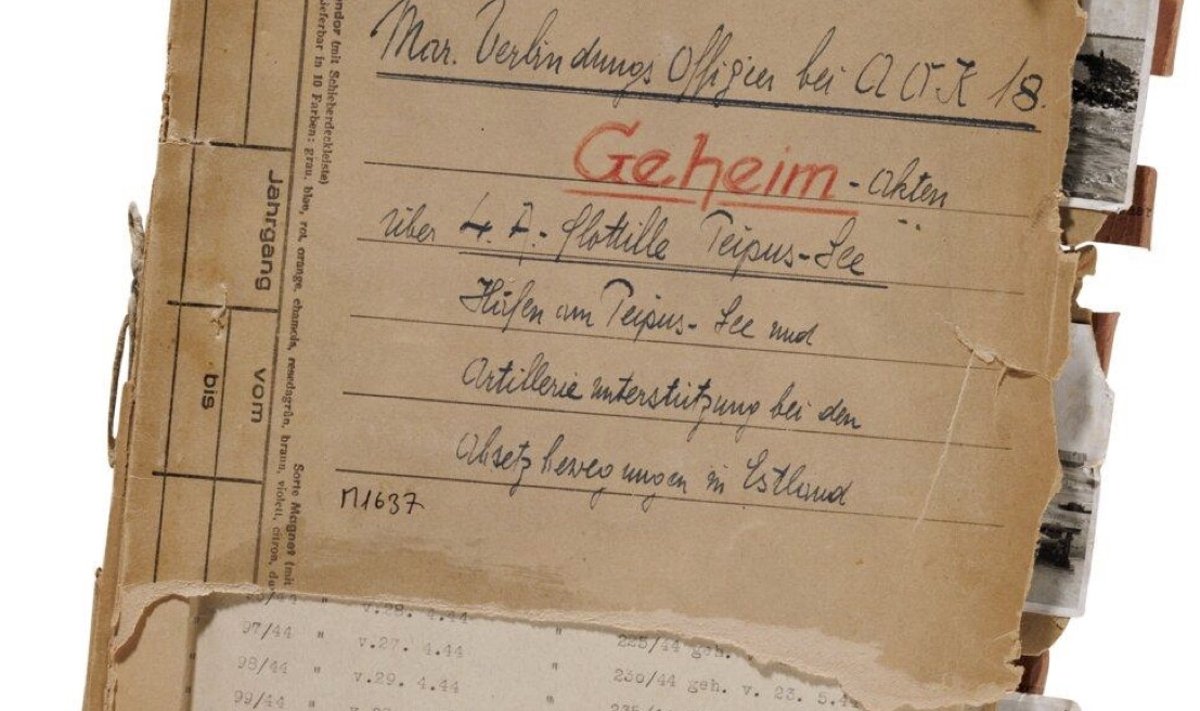 Mar. Verbindungs Offizier bei A.O.K 18.
Geheim - Akten
über 4. A.- Flottille Peipus-See
Häfen am Peipus-See und
Artillerieunterstützung bei den
Absetzbewegungen in Estland
M1637
Jahrgang
vom
bis
(mit Schieberdeckleiste)
lieferbar in 10 Farben: grau, blau, rot, orange, chamois, resedagrün, braun, violett, citron,
Sorte Magnet (mit
" v.28. 4.44
97/44 " v.27. 4.44 " 225/44 geh.
98/44 " v.29. 4.44 " 230/44 geh. v. 23. 5.44
99/44 "